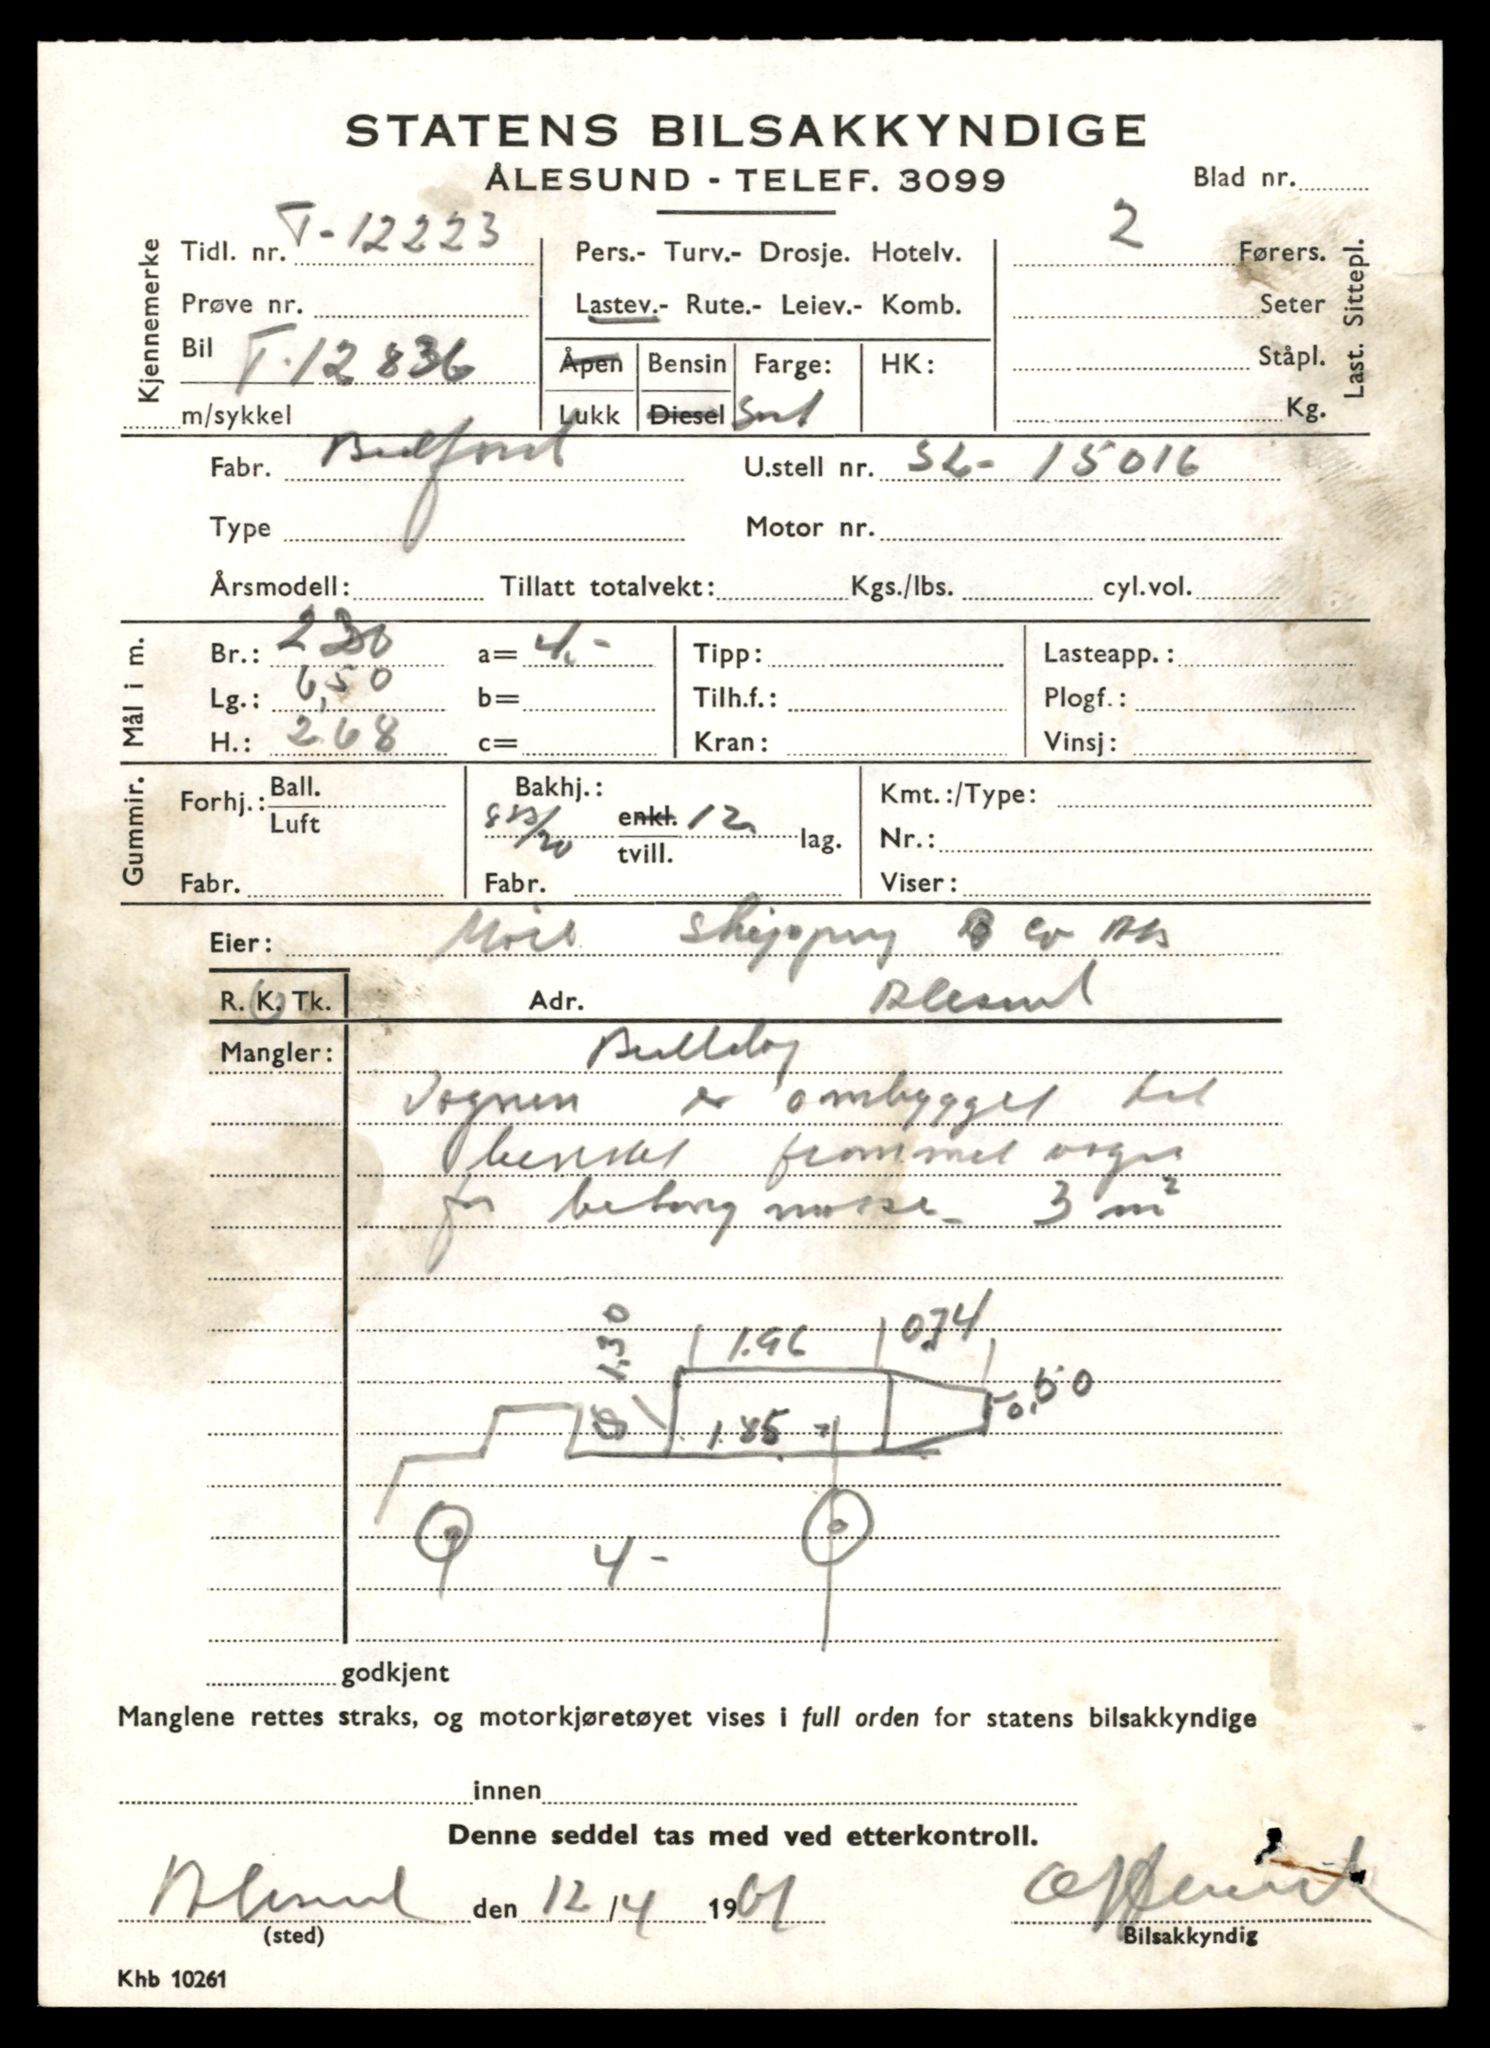 STATENS BILSAKKYNDIGE
ÅLESUND - TELEF. 3099
Blad nr.
Kjennemerke
Tidl. nr. T-12223
Prøve nr.
Bil T-12836
m/sykkel
Pers.- Turv.- Drosje. Hotelv.
Lastev.- Rute.- Leiev.- Komb.
Åpen Bensin Farge: HK:
Lukk Diesel Sort
2 Førers.
Seter
Ståpl.
Kg.
Last. Sittepl.
Fabr. Bedford U.stell nr. SL- 15016
Type Motor nr.
Årsmodell: Tillatt totalvekt: Kgs./lbs. cyl.vol.
Mål i m.
Br.: 230 a= 4,- Tipp: Lasteapp.:
Lg.: 6,50 b= Tilh.f.: Plogf.:
H.: 268 c= Kran: Vinsj:
Gummir.
Forhj.: Ball. Luft
Fabr.
Bakhj.:
825/20 enkl. tvill. 12 lag.
Fabr.
Kmt.:/Type:
Nr.:
Viser:
Eier: Møre Shipping & Co A/s
R. K. Tk. Adr. Ålesund
Mangler:
Vognen er ombygget til
trommel vogn
for betong masse - 3 m²
1.30 1.96 0.74
1.85 0,50
4-
godkjent
Manglene rettes straks, og motorkjøretøyet vises i full orden for statens bilsakkyndige
innen
Denne seddel tas med ved etterkontroll.
Ålesund den 12/4 1961
(sted) Bilsakkyndig
Khb 10261